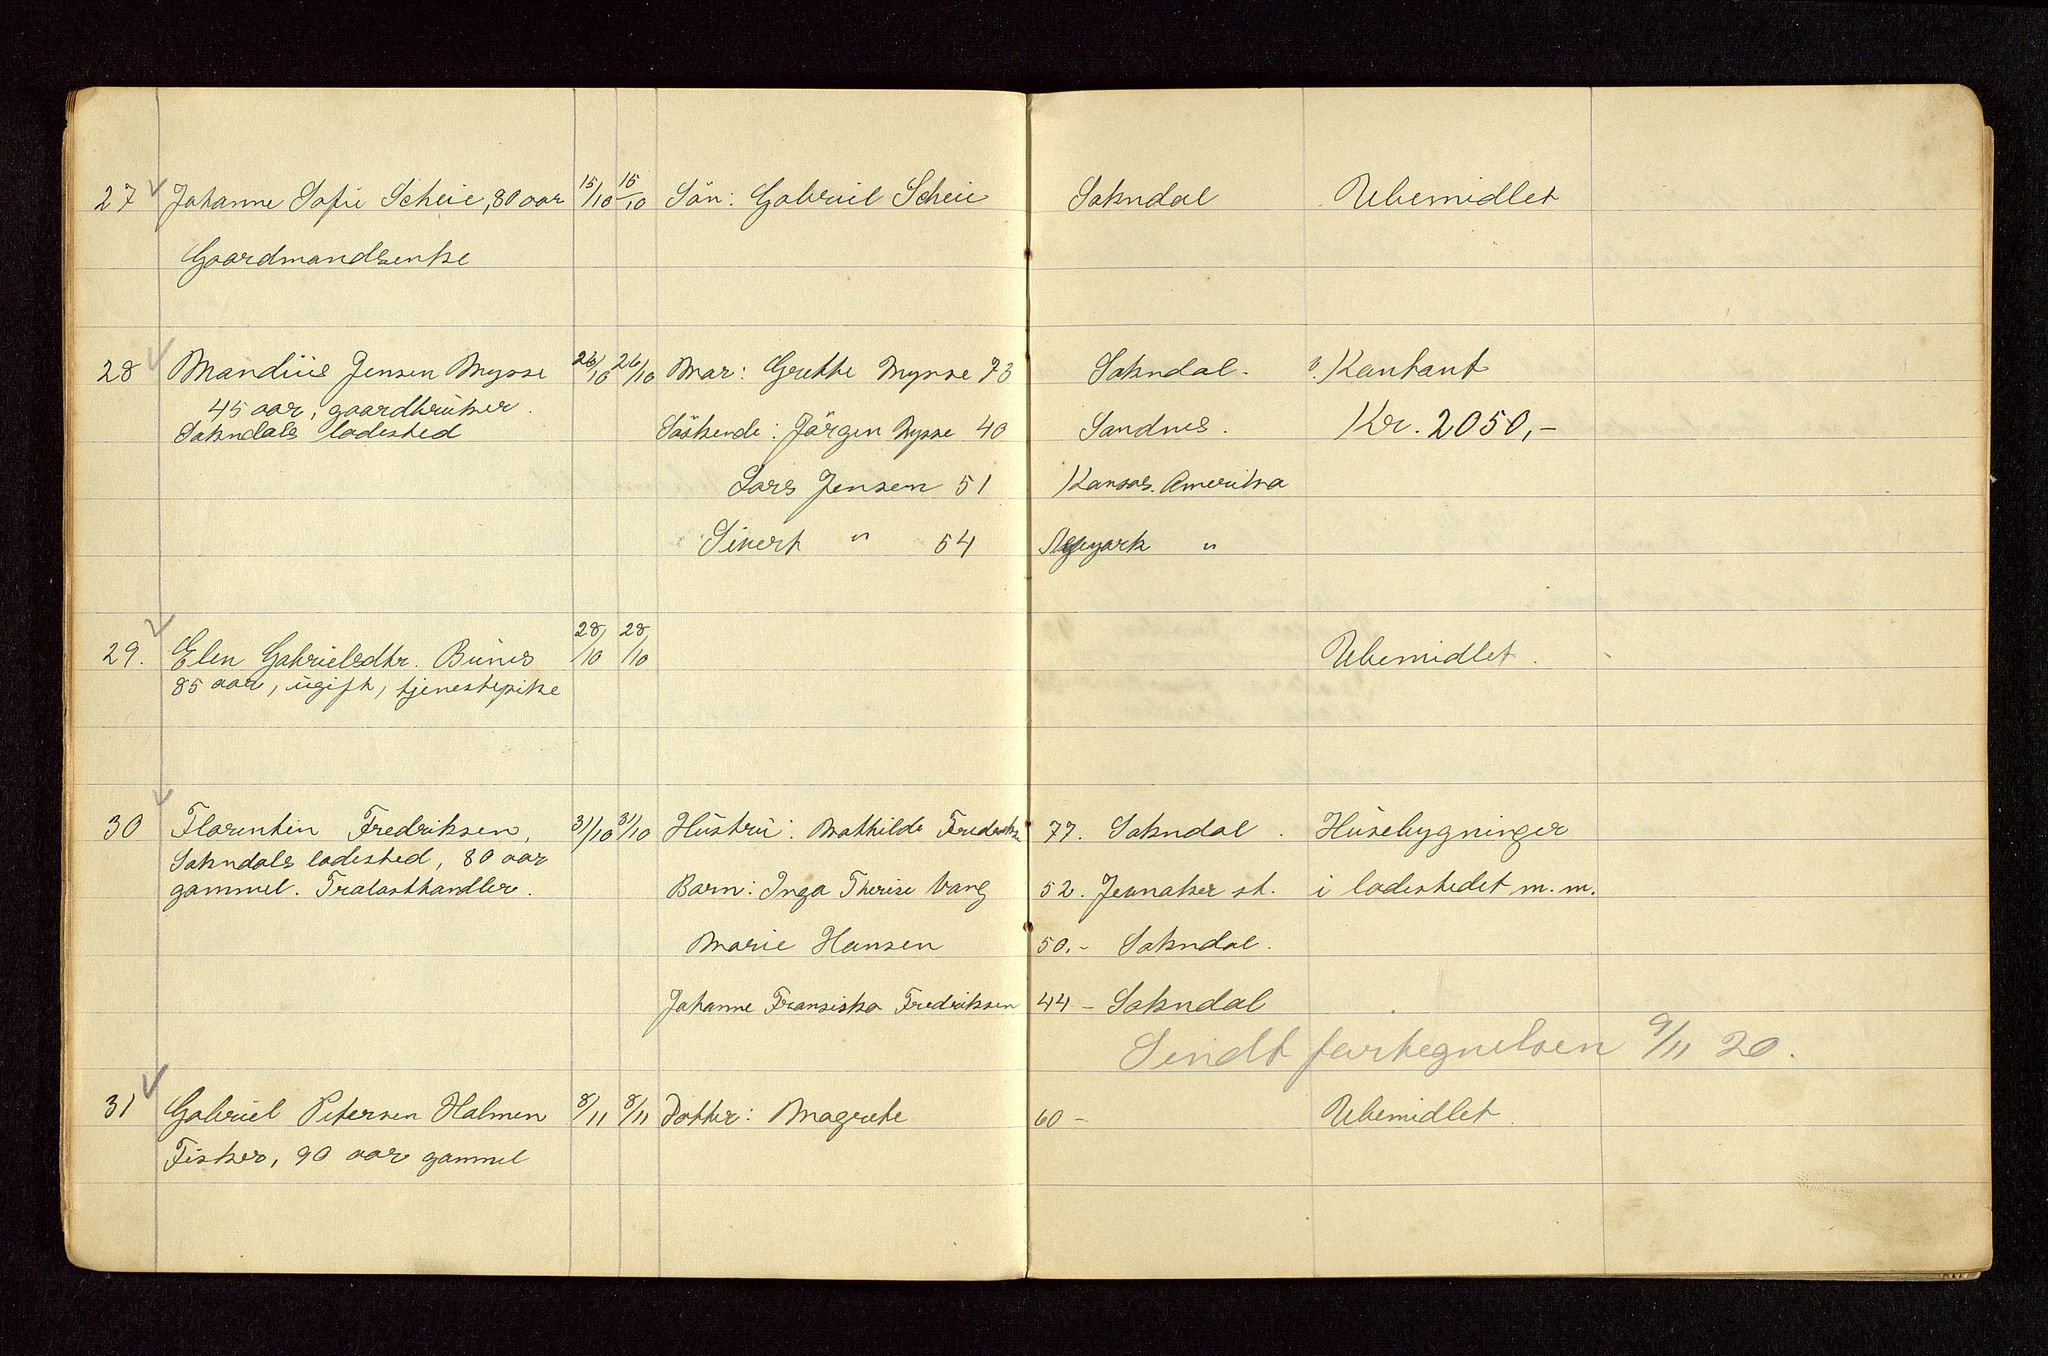 27 Johanne Sofie Scheie, 80 aar 15/10 15/10 Sön: Gabriel Scheie Sokndal Ubemidlet
Gaardmandsenke
28 Mandius Jensen Mysse 26/10 26/10 Mor: Grethe Mysse 73 Sokndal. Kontant
45 aar, gaardbruker. Söskende: Jörgen Mysse 40 Sandnes. Kr. 2050,-
Sokndals ladested
Lars Jensen 51 Kansas. Amerika
Sivert " 54 Newyork "
29. Elen Gabrielsdtr. Bunes 28/10 28/10 Ubemidlet.
85 aar, ugift, tjenestepike
30 Florentin Fredriksen, 31/10 31/10 Hustru: Mathilde 77. Sokndal. Husebygninger
Sokndals ladested, 80 aar
gammel. Trælasthandler. Barn: Inga Therese Vang 52. Jevnaker st. i ladestedet m.m.
Marie Hansen 50,- Sokndal.
Johanne Fransiska Fredriksen 44 - Sokndal
Sendt fortegnelsen 9/11 20.
31 Gabriel Petersen Halmen 8/11 8/11 Datter: Magrete 60 - Ubemidlet.
Fisker, 90 aar gammel